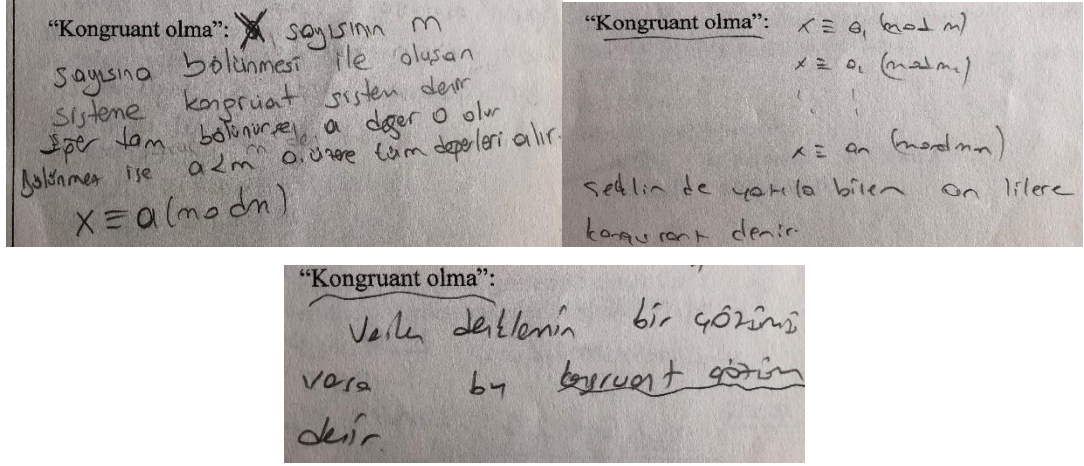 "Kongruant olma": X sayısının m
sayısına bölünmesi ile oluşan
sisteme kongruant sistem denir
Eğer tam bölünürse, a değer 0 olur
Bölünmez ise a<m o. üzere tüm değerleri alır.
X ≡ a (mod n)
"Kongruant olma": x ≡ a₁ (mod m)
x ≡ a₂ (mod m₂)
x ≡ an (mod mn)
şeklin de yazıla bilen denlilere
kongurant denir.
"Kongruant olma":
Verilen denklemin bir çözümü
varsa bu kongruant çözüm
denir